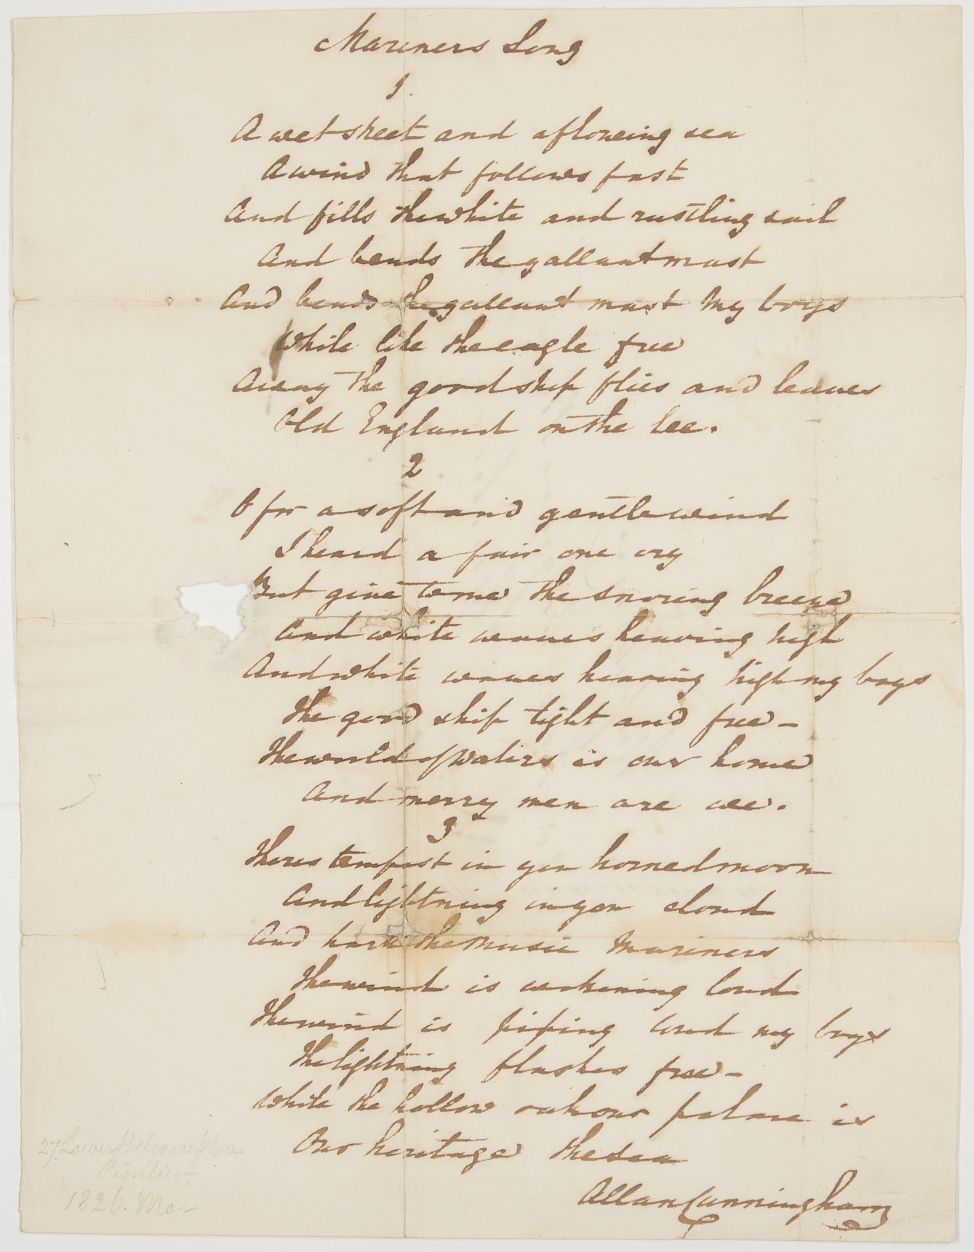 Mariners Song
1.
A wet sheet and a flowing sea
A wind that follows fast
And fills the white and rustling sail
And bends the gallant mast
And bends the gallant mast my boys
While like the eagle free
Away the good ship flies and leaves
Old England on the lee.
2
O for a soft and gentle wind
I heard a fair one cry
But give to me the snoring breeze
And white waves heaving high
And white waves heaving high my boys
The good ship tight and free –
The world of waters is our home
And merry men are we.
3
Theres tempest in yon horned moon
And lightning in yon cloud
And hark the music mariners
The wind is wakening loud
The wind is piping loud my boys
The lightning flashes free –
While the hollow oak our palace is
Our heritage the sea
Allan Cunningham
27 Lower Belgrave Place
Pimlico
1826. Mar